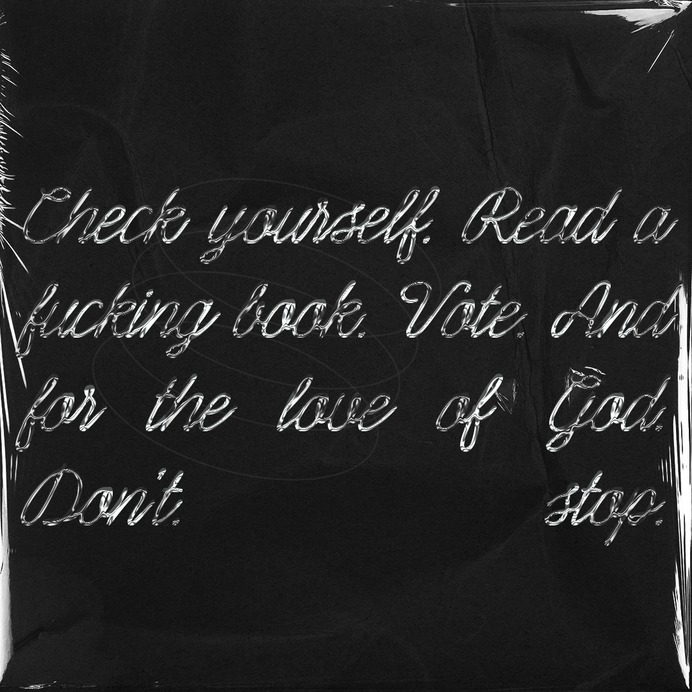 Check yourself. Read a
fucking book. Vote. And
for the love of God.
Don't. stop.